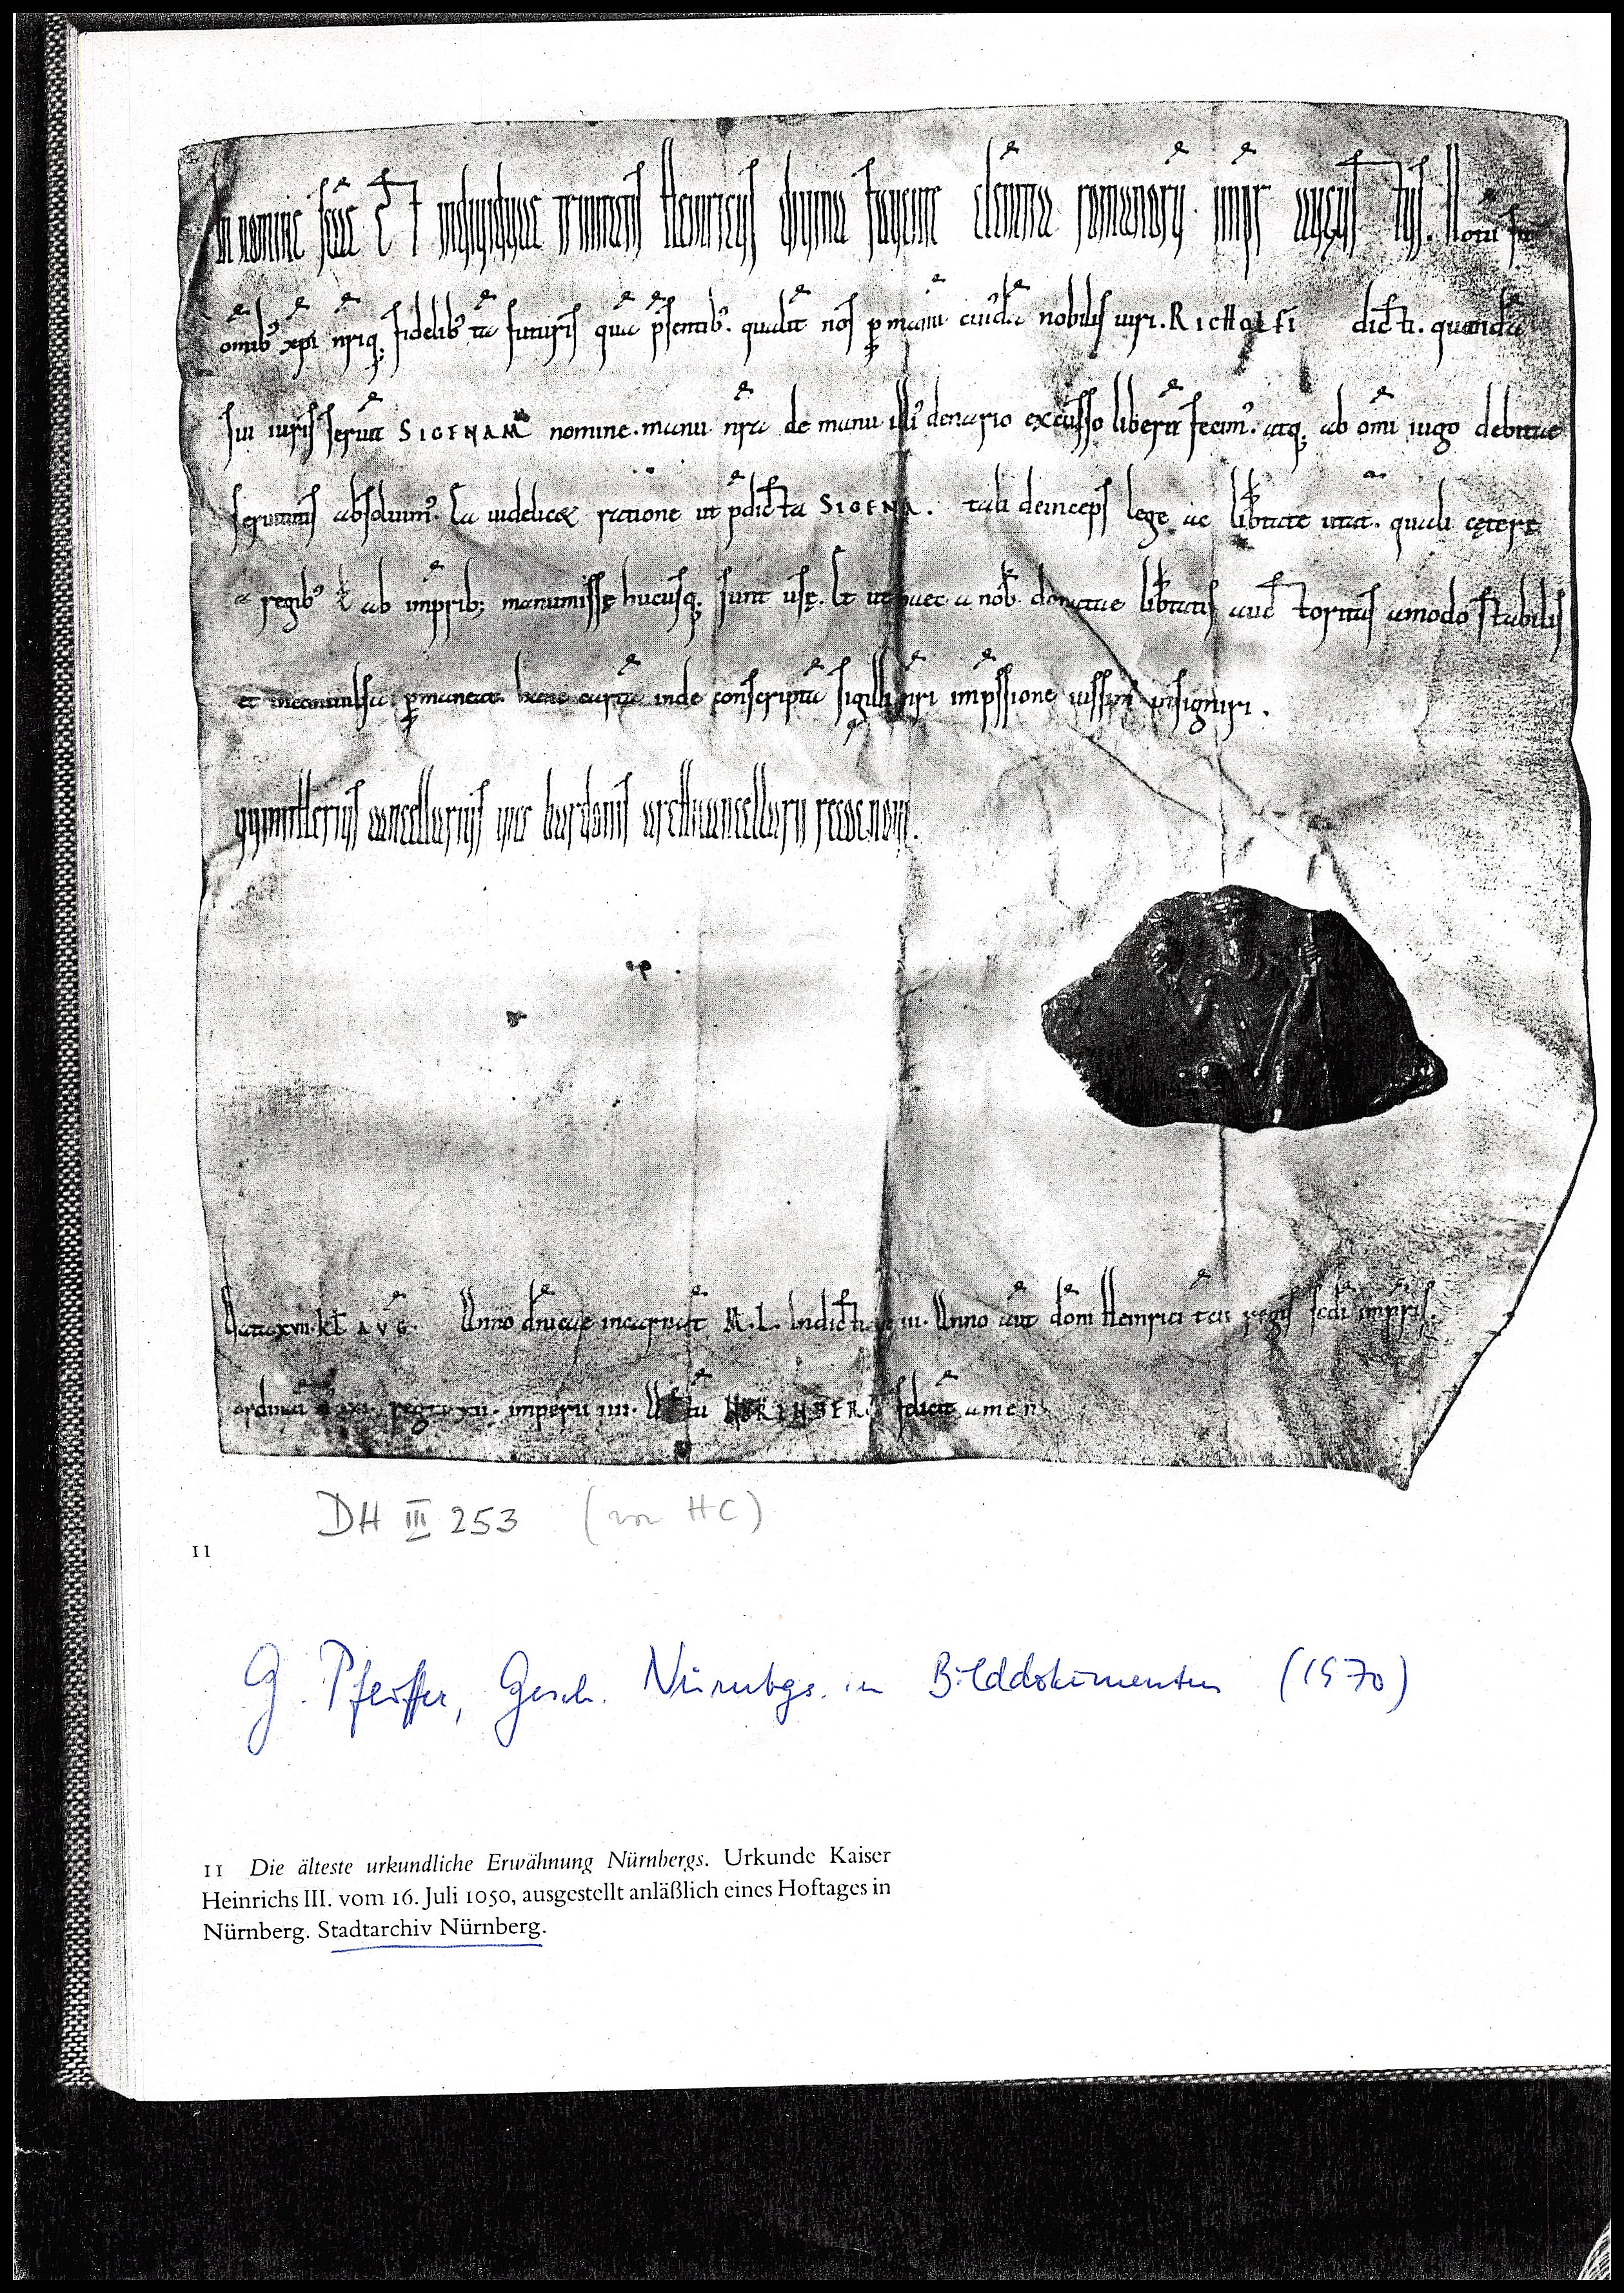 In nomine sc̄ae & indiuiduae trinitatis Heinricus diuina fauente clem̄tia romanorū imp̄r aug̣us t̄us. Notū sit
om̄ib; xp̄i nr̄iq; fidelib; tā futuris quā p̄sentib;. qualit̄ nos p manū cuiusdā nobilis uiri. RICHOLFI dict̄i. quandā
sui iuris seruā SIGENAM nomine. manu nr̄a de manu illi' denario excusso liberā fecim'. atq; ab om̄i iugo debitae
seruitutis absoluim'. Ea uidelicet ratione ut p̄dict̄a SIGENA. tali deinceps lege ac lib̄tate utat̄. quali cętere
a regib; & ab imp̄rib; manumissę hucusq; sunt usę. Et ut haec a nob̄ donatae lib̄tatis auct̄oritas amodo stabilis
et inconuulsa pmaneat. hanc cartā inde conscriptā sigilli nr̄i imp̄ssione iussim' insigniri.
VVinitherius cancellarius uice bardonis archicancellarii recognoui.
Data xvii. kl̄. AVG. Anno dn̄icae incarnat̄. M. L. Indict̄. iii. Anno aut̄ dom̄i Heinrici tercii regis sc̄di imp̄ris
ordinat̄ xxi. regn xii. imperii iiii. Act̄ū NORENBERC feliciť amen.
DH III 253 (von HC)
11
G. Pfeiffer, Gesch. Nürnbgs. in Bilddokumenten (1970)
11 Die älteste urkundliche Erwähnung Nürnbergs. Urkunde Kaiser
Heinrichs III. vom 16. Juli 1050, ausgestellt anläßlich eines Hoftages in
Nürnberg. Stadtarchiv Nürnberg.